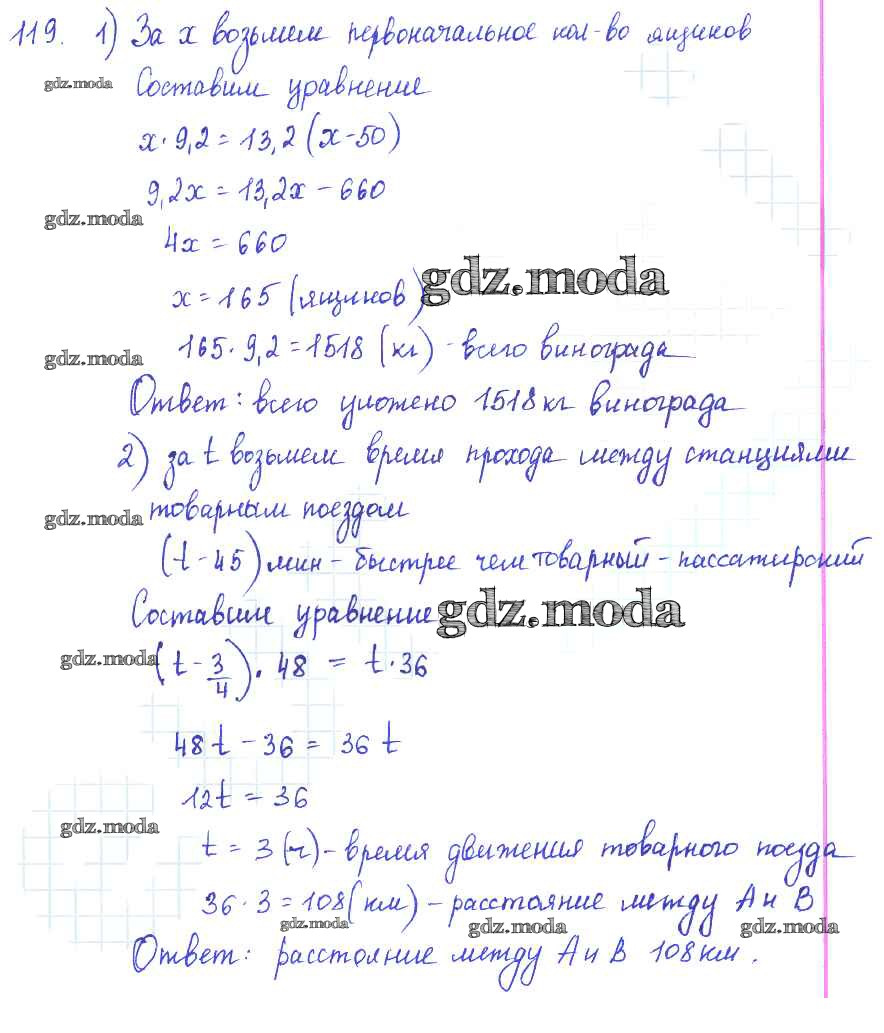 119. 1) За x возьмем первоначальное кол-во ящиков
gdz.moda Составим уравнение
x · 9,2 = 13,2 (x - 50)
9,2x = 13,2x - 660
gdz.moda
4x = 660
gdz.moda
x = 165 (ящиков)
165 · 9,2 = 1518 (кг) - всего винограда
gdz.moda
Ответ: всего уложено 1518 кг винограда
2) за t возьмем время прохода между станциями
gdz.moda товарным поездом
(t - 45) мин - быстрее чем товарный - пассажирский
Составим уравнение gdz.moda
gdz.moda (t - 3/4) · 48 = t · 36
48t - 36 = 36t
12t = 36
gdz.moda
t = 3 (ч) - время движения товарного поезда
36 · 3 = 108 (км) - расстояние между А и В
gdz.moda gdz.moda gdz.moda
Ответ: расстояние между А и В 108 км.